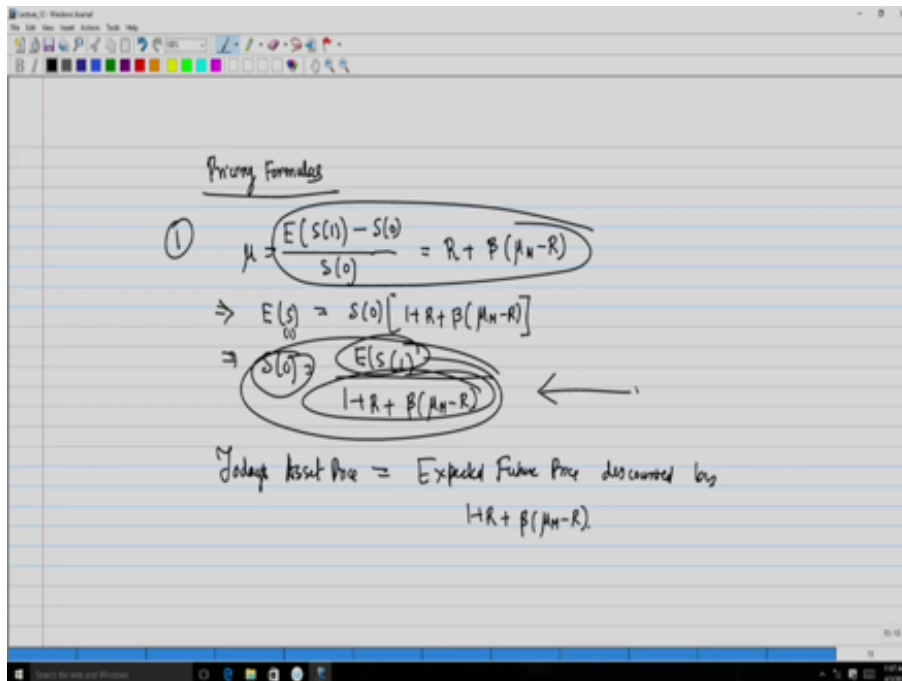 Lecture_12 - Windows Journal
File Edit View Insert Actions Tools Help
B I
Pricing Formulas
① μ = (E(S(1)) - S(0)) / S(0) = R + β(μ_M - R)
⇒ E(S(1)) = S(0)[1+R+β(μ_M-R)]
⇒ S(0) = E(S(1)) / (1+R+β(μ_M-R)) ←
Todays Asset Price = Expected Future Price discounted by
1+R+β(μ_M-R).
Search the web and Windows